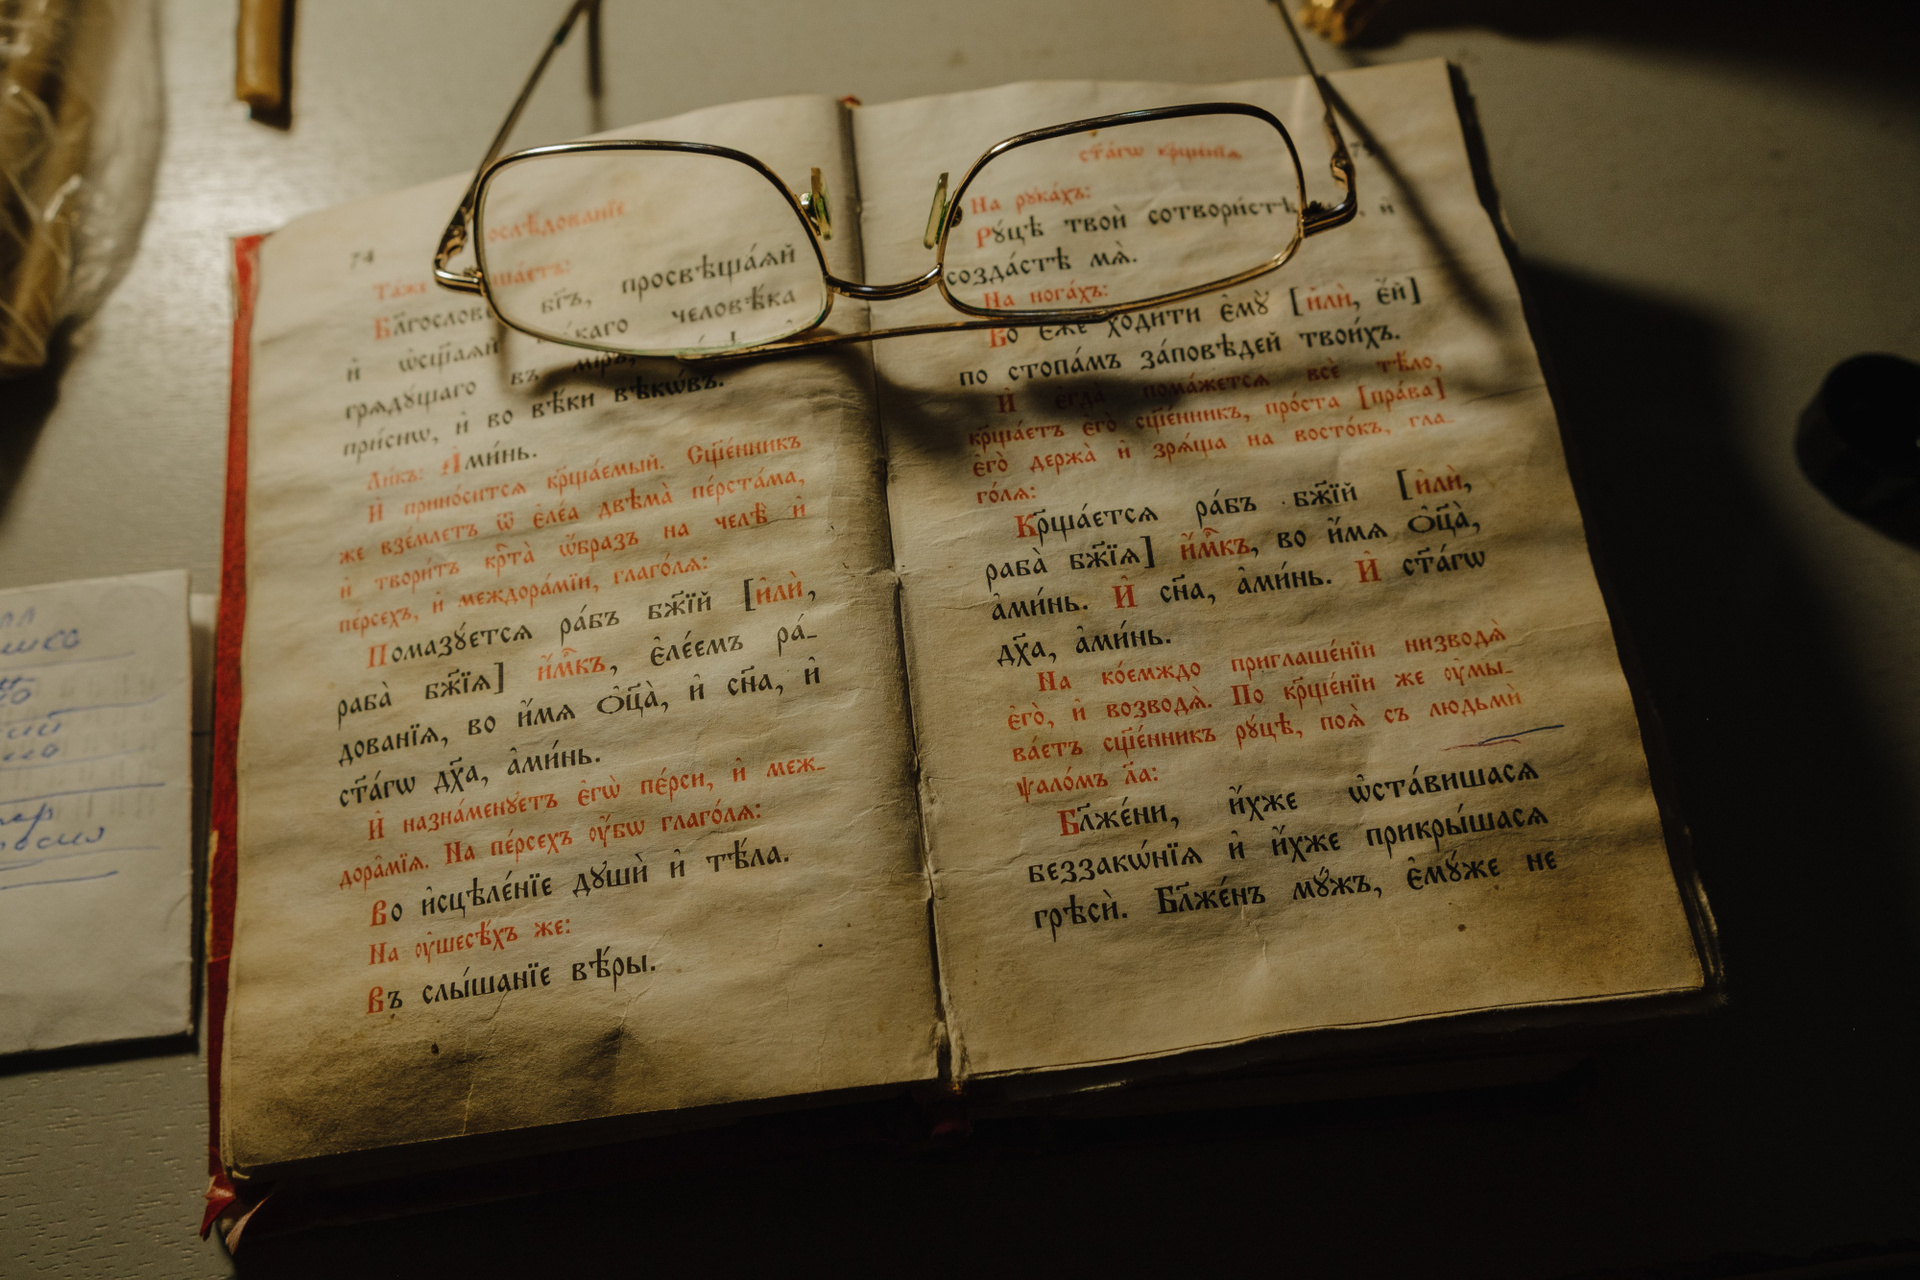 74
Та́же
Бл҃гослове бг҃ъ, просвѣща́ѧй
и҆ ѡ҆сщ҃а́ѧй каго человѣ́ка
грѧдꙋ́щаго въ мі́ръ,
при́снѡ, и҆ во вѣ́ки вѣкѡ́въ.
Ли́къ: А҆ми́нь.
И҆ прино́ситсѧ кр҃ща́емый. Сщ҃е́нникъ
же взе́млетъ ѿ є҆ле́а двѣма̀ пе́рстáма,
и҆ твори́тъ крⷭ҇та̀ ѡ҆́бразъ на челѣ̀ и҆
пе́рсехъ, и҆ междора́мїи, глаго́лѧ:
Помазꙋ́етсѧ ра́бъ бж҃їй [и҆лѝ,
раба̀ бж҃їѧ] и҆́м҃къ, є҆ле́емъ ра́-
дованїѧ, во и҆́мѧ ѻ҆ц҃а̀, и҆ сн҃а, и҆
ст҃а́гѡ дх҃а, а҆ми́нь.
И҆ назна́менꙋетъ є҆гѡ̀ пе́рси, и҆ меж-
дора̑мїѧ. На пе́рсехъ ᲂу҆́бѡ глаго́лѧ:
Во и҆сцѣле́нїе дꙋшѝ и҆ тѣ́ла.
На ᲂу҆шесѣ́хъ же:
Въ слы́шанїе вѣ́ры.
ст҃а́гѡ кр҃ще́нїѧ
На рꙋка́хъ:
Рꙋ́цѣ твоѝ сотвори́стѣ и҆
созда́стѣ мѧ̀.
На нога́хъ:
Во є҆́же ходи́ти є҆мꙋ̀ [и҆лѝ, є҆́й]
по стопа́мъ за́повѣдей твои́хъ.
И҆ є҆гда̀ пома́жетсѧ всѐ тѣ́ло,
кр҃ща́етъ є҆го̀ сщ҃е́нникъ, про́ста [пра́ва]
є҆го̀ держа̀ и҆ зрѧ́ща на восто́къ, гла-
го́лѧ:
Кр҃ща́етсѧ ра́бъ бж҃їй [и҆лѝ,
раба̀ бж҃їѧ] и҆́м҃къ, во и҆́мѧ ѻ҆ц҃а̀,
а҆ми́нь. И҆ сн҃а, а҆ми́нь. И҆ ст҃а́гѡ
дх҃а, а҆ми́нь.
На ко́емждо приглаше́нїи низводѧ̀
є҆го̀, и҆ возводѧ̀. По кр҃ще́нїи же ᲂу҆мы-
ва́етъ сщ҃е́нникъ рꙋ́цѣ, поѧ̀ съ людьмѝ
ѱало́мъ л҃а:
Бл҃же́ни, и҆̀хже ѡ҆ста́вишасѧ
беззакѡ́нїѧ и҆ и҆̀хже прикры́шасѧ
грѣсѝ. Бл҃же́нъ мꙋ́жъ, є҆мꙋ́же не